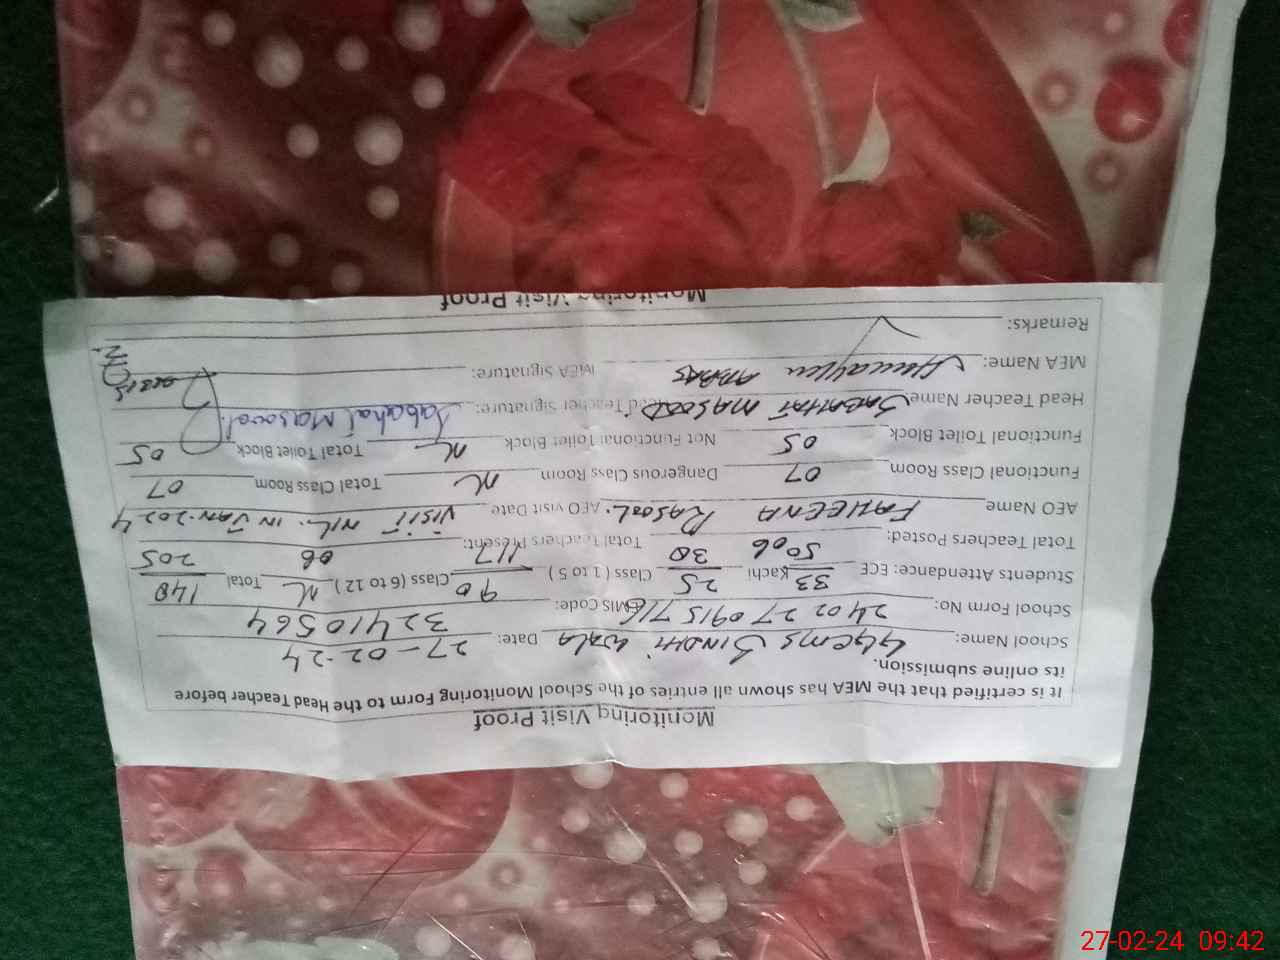 Monitoring Visit Proof
It is certified that the MEA has shown all entries of the School Monitoring Form to the Head Teacher before
its online submission.
School Name: GGCMS SINDHI WALA Date: 27-02-24
School Form No: 24022709157 16 EMIS Code: 32410564
Students Attendance: ECE 33/50 Kachi 25/38 Class ( 1 to 5 ) 90/117 Class ( 6 to 12 ) N Total 148/205
Total Teachers Posted: 06 Total Teachers Present: 06
AEO Name FAHEENA RASOOL. AEO visit Date VISIT NIL. IN JAN-2024
Functional Class Room 07 Dangerous Class Room N Total Class Room 07
Functional Toilet Block 05 Not Functional Toilet Block N Total Toilet Block 05
Head Teacher Name SABAHAT MASOOD Head Teacher Signature: Sabahat Masood.
MEA Name: Humayun ABBAS MEA Signature:
Remarks:
Monitoring Visit Proof
27-02-24 09:42